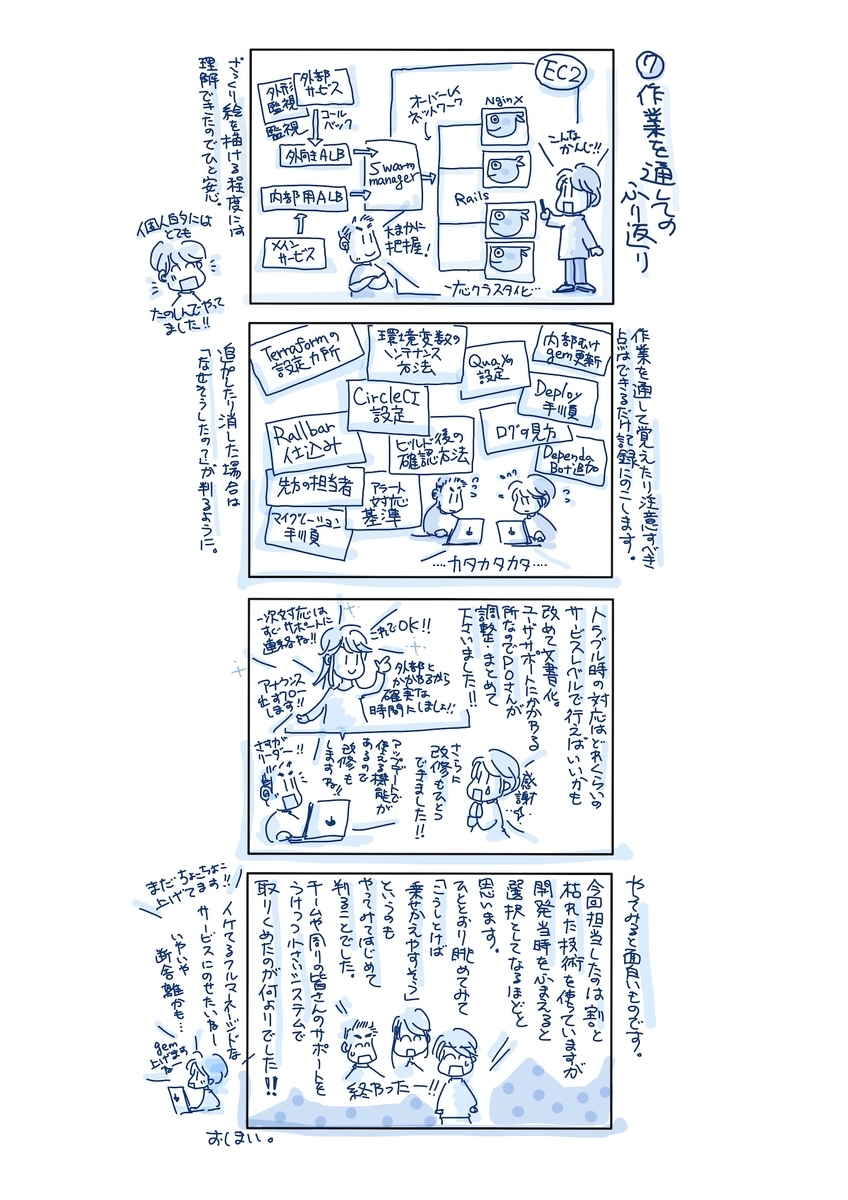 ⑦作業を通しての
ふり返り
EC2
外形
監視
監視
外部
サービス
コール
バック
外向きALB
内部用ALB
メイン
サービス
Swarm
manager
オーバーレイ
ネットワーク
Nginx
Rails
こんな
かんじ!!
大まかに
把握!
一応クラスタ化…
ざっくり絵を描ける程度には
理解できたのでひと安心。
個人的には
とても
たのしんでやって
ました!!
作業を通して覚えたり注意すべき
点はできるだけ記録にのこします。
Terraformの
設定カ所
環境変数の
メンテナンス
方法
Quayの
設定
内部むけ
gem更新
Deploy
手順
CircleCI
設定
Rallbar
仕込み
ビルド後の
確認方法
ログの見方
Dependa
Bot追加
先方の担当者
アラート
対応
基準
マイグレーション
手順
…カタカタカタ…
追加したり消した場合は
「なぜそうしたの?」が判るように。
トラブル時の対応はどれくらいの
サービスレベルで行えばいいかも
改めて文書化。
ユーザサポートにかかわる
所なのでPOさんが
調整・まとめて
下さいました!!
これでOK!!
一次対応は
すぐサポートに
連絡ね!!
外部と
かかわるから
確実な
時間にしました!!
アナウンス
出すフロー
します!!
さらに
改修もひとつ
できました!!
感謝
アップデートで
使える機能が
あるので
改修も
しますね!!
さすが
リーダー!!
やってみると面白いものです。
今回担当したのは割と
枯れた技術を使っていますが
開発当時をふまえると
選択としてなるほどと
思います。
ひととおり眺めてみて
「こうしとけば
乗せかえやすそう」
というのも
やってみてはじめて
判ることでした。
チームや周りの皆さんのサポートを
うけつつ小さいシステムで
取りくめたのが何よりでした!!
終わったー!!
イケてるフルマネージドな
サービスにのせたいねー
まだちょこちょこ
上げてます!!
いやいや
断捨離かも…
gem
上げますねー
おしまい。